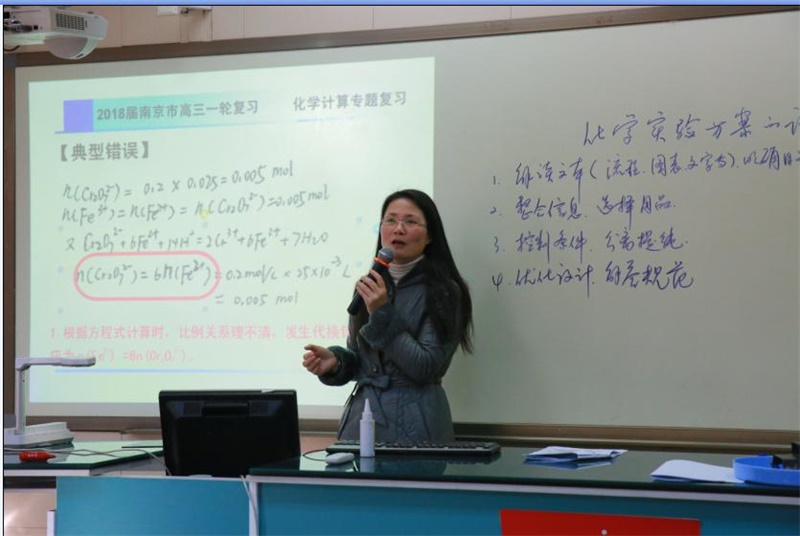 2018届南京市高三一轮复习 化学计算专题复习
【典型错误】
n(Cr₂O₇²⁻) = 0.2 × 0.025 = 0.005 mol
n(Fe²⁺) = n(Fe³⁺) = n(Cr₂O₇²⁻) = 0.005 mol
× Cr₂O₇²⁻ + 6Fe²⁺ + 14H⁺ = 2Cr³⁺ + 6Fe³⁺ + 7H₂O
n(Cr₂O₇²⁻) = 6n(Fe²⁺) = 0.2 mol/L × 25×10⁻³ L
= 0.005 mol
1. 根据方程式计算时，比例关系理不清，发生代换
化学实验方案的
1. 细读文本（流程、图表、文字等）、以明目
2. 整合信息、选择用品
3. 控制条件、分离提纯
4. 优化设计、解答规范